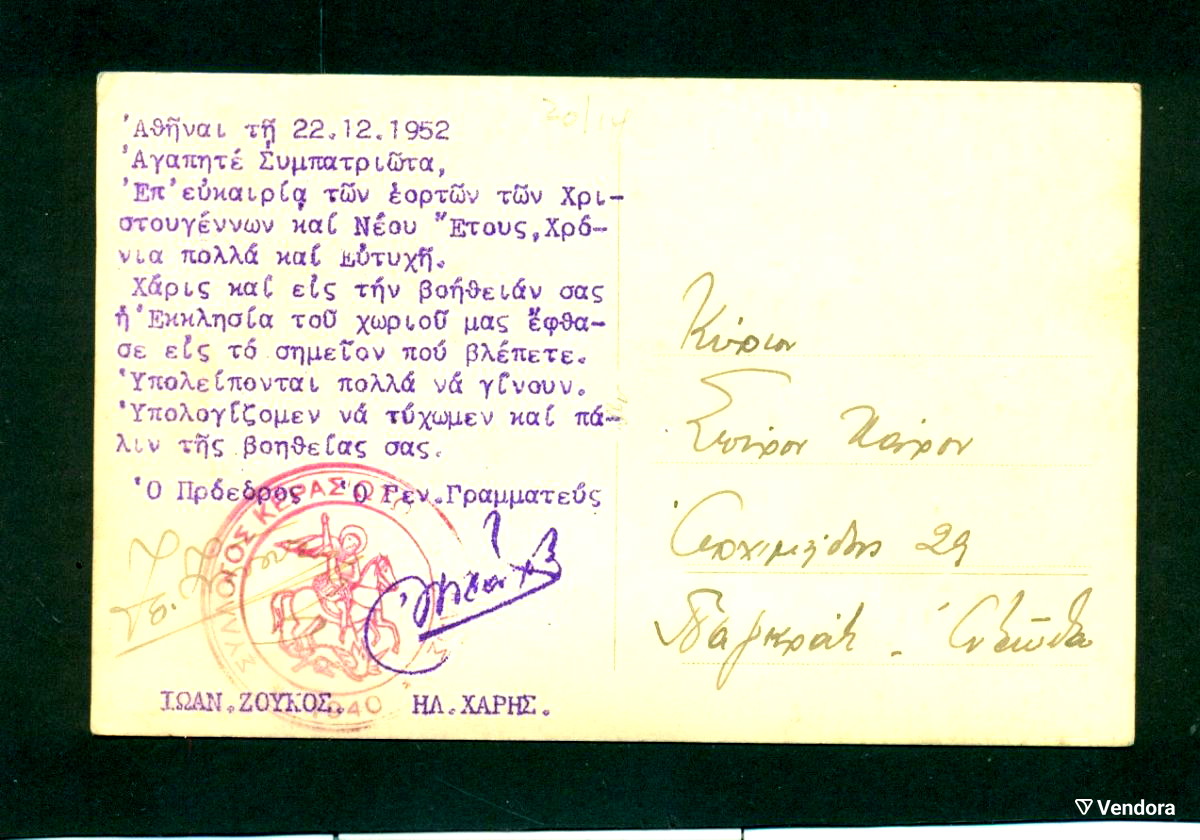 Ἀθῆναι τῇ 22.12.1952
Ἀγαπητέ Συμπατριῶτα,
Ἐπ' εὐκαιρίᾳ τῶν ἑορτῶν τῶν Χρι-
στουγέννων καί Νέου Ἔτους, Χρό-
νια πολλά καί Εὐτυχῆ.
Χάρις καί εἰς τήν βοήθειάν σας
ἡ Ἐκκλησία τοῦ χωριοῦ μας ἔφθα-
σε εἰς τό σημεῖον πού βλέπετε.
Ὑπολείπονται πολλά νά γίνουν.
Ὑπολογίζομεν νά τύχωμεν καί πά-
λιν τῆς βοηθείας σας.
Ὁ Πρόεδρος Ὁ Γεν.Γραμματεύς
ΣΥΛΛΟΓΟΣ ΚΕΡΑΣΩΤ
1940
ΙΩΑΝ.ΖΟΥΚΟΣ. ΗΛ.ΧΑΡΗΣ.
20/14
Κύριον
Σπύρον
Ἀρχιμήδους 29
Παγκράτι
Vendora